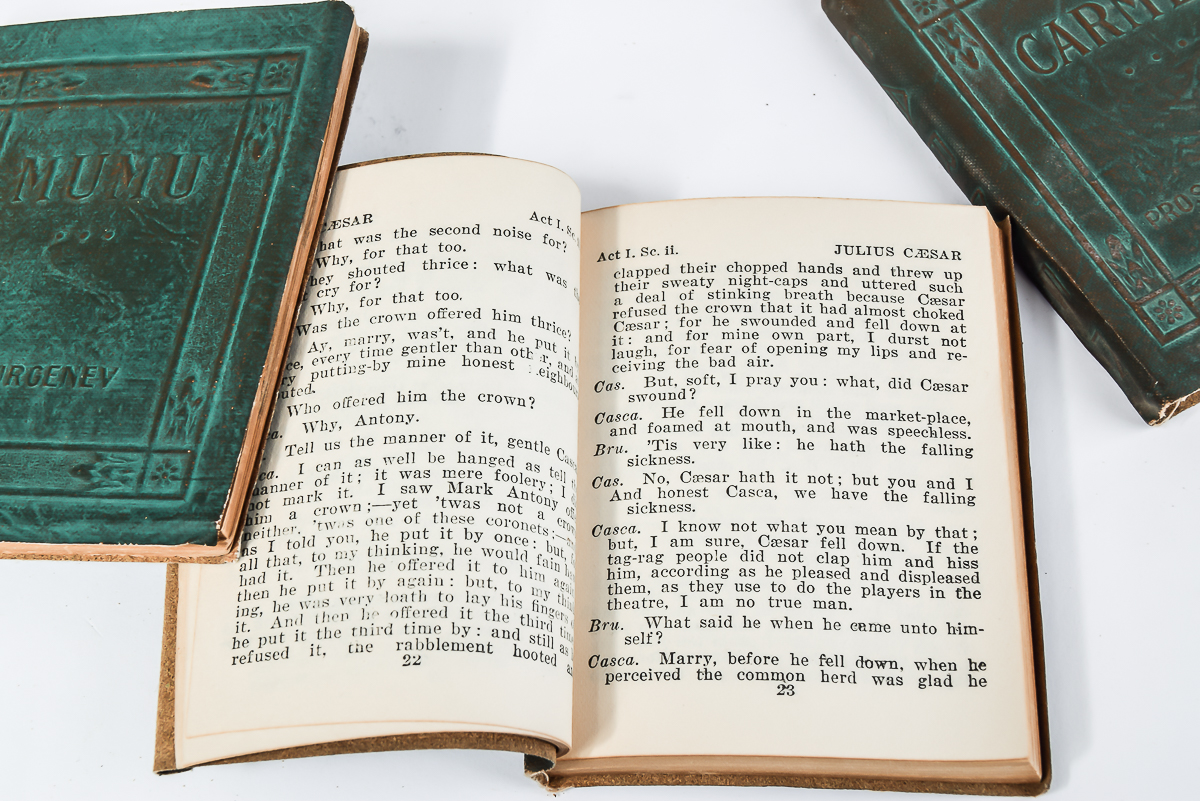 MUMU
URGENEV
CARME
PROS
CÆSAR
Act I. Sc.
hat was the second noise for?
Why, for that too.
hey shouted thrice: what was
cry for?
Why, for that too.
Was the crown offered him thrice?
Ay, marry, was't, and he put it
every time gentler than other, and
putting-by mine honest neighbou
uted.
Who offered him the crown?
Why, Antony.
Tell us the manner of it, gentle Casca
I can as well be hanged as tell
manner of it; it was mere foolery; I
not mark it. I saw Mark Antony
him a crown;—yet 'twas not a crow
neither, 'twas one of these coronets:—
as I told you, he put it by once: but,
all that, to my thinking, he would fain
had it. Then he offered it to him aga
then he put it by again: but, to my thin
ing, he was very loath to lay his fingers
it. And then he offered it the third time
he put it the third time by: and still as
refused it, the rabblement hooted
22
Act I. Sc. ii. JULIUS CÆSAR
clapped their chopped hands and threw up
their sweaty night-caps and uttered such
a deal of stinking breath because Cæsar
refused the crown that it had almost choked
Cæsar; for he swounded and fell down at
it: and for mine own part, I durst not
laugh, for fear of opening my lips and re-
ceiving the bad air.
Cas. But, soft, I pray you: what, did Cæsar
swound?
Casca. He fell down in the market-place,
and foamed at mouth, and was speechless.
Bru. 'Tis very like: he hath the falling
sickness.
Cas. No, Cæsar hath it not; but you and I
And honest Casca, we have the falling
sickness.
Casca. I know not what you mean by that;
but, I am sure, Cæsar fell down. If the
tag-rag people did not clap him and hiss
him, according as he pleased and displeased
them, as they use to do the players in the
theatre, I am no true man.
Bru. What said he when he came unto him-
self?
Casca. Marry, before he fell down, when he
perceived the common herd was glad he
23